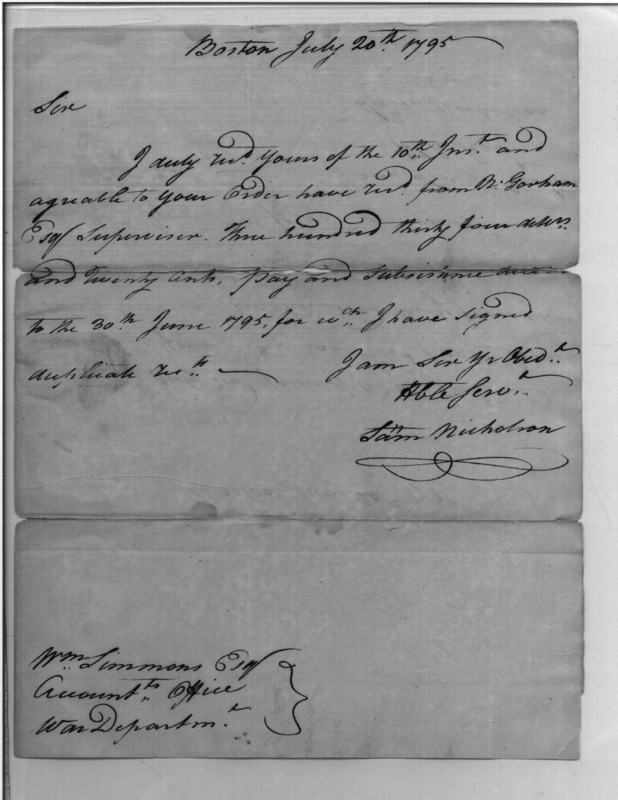 Boston July 20th 1795
Sir
I duly recd. Yours of the 10th. Inst. and
agreable to your Order have recd. from N. Gorham
Esqr Superviser. Three hundred thirty four dollrs.
and Twenty Cents, pay and Subsistence due
to the 30th June 1795, for wch. I have Signed
duplicate rects.
I am Sir Yr Obedt.
Hble Servt.
Saml Nicholson
Wm. Simmons Esqr
Accountts. Office
War Departmt.